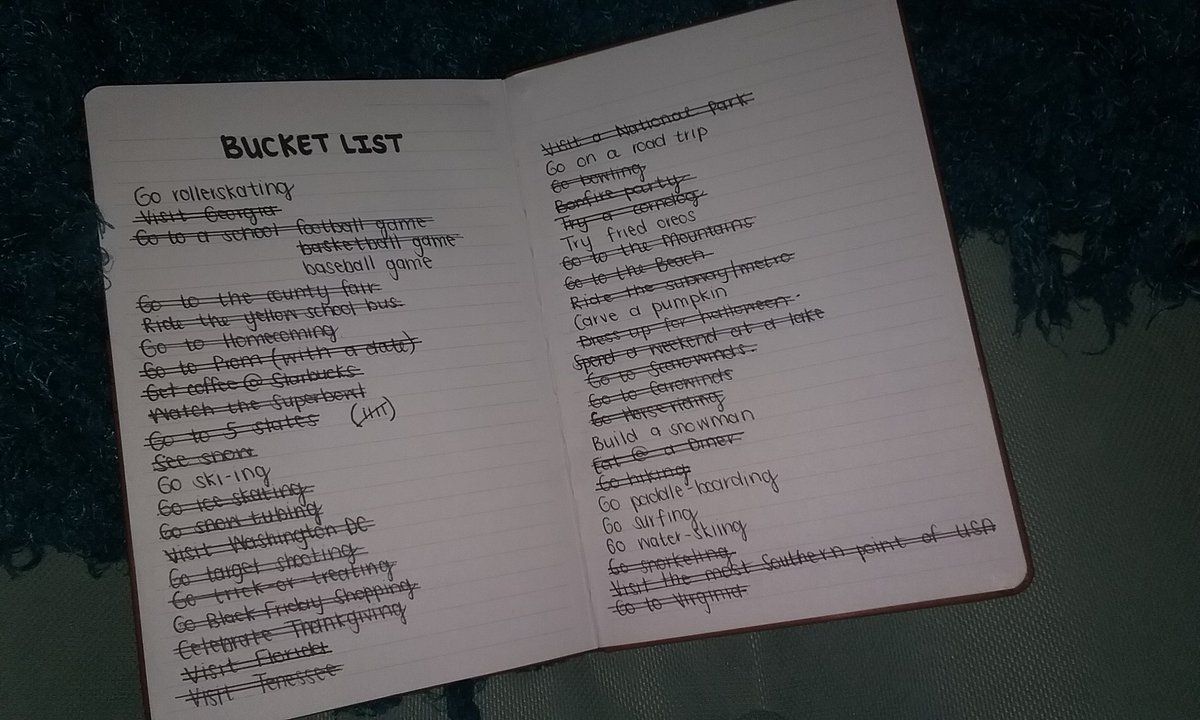 BUCKET LIST
Go rollerskating
Visit Georgia
Go to a school football game
basketball game
baseball game
Go to the county fair
Ride the yellow school bus
Go to Homecoming
Go to Prom (with a date)
Get coffee @ Starbucks
Watch the Superbowl
Go to 5 states (IIII)
See snow
Go ski-ing
Go ice skating
Go snow tubing
Visit Washington DC
Go target shooting
Go trick or treating
Go Black Friday Shopping
Celebrate Thanksgiving
Visit Florida
Visit Tenessee
Visit a National Park
Go on a road trip
Go bowling
Bonfire party
Try a corndog
Try fried oreos
Go to the Mountains
Go to the Beach
Ride the subway/metro
Carve a pumpkin
Dress up for halloween.
Spend a weekend at a lake
Go to Scarowinds.
Go to Carowinds
Go Horseriding
Build a snowman
Eat @ a Diner
Go hiking
Go paddle-boarding
Go surfing
Go water-skiing
Go snorkeling
Visit the most Southern point of USA
Go to Virginia